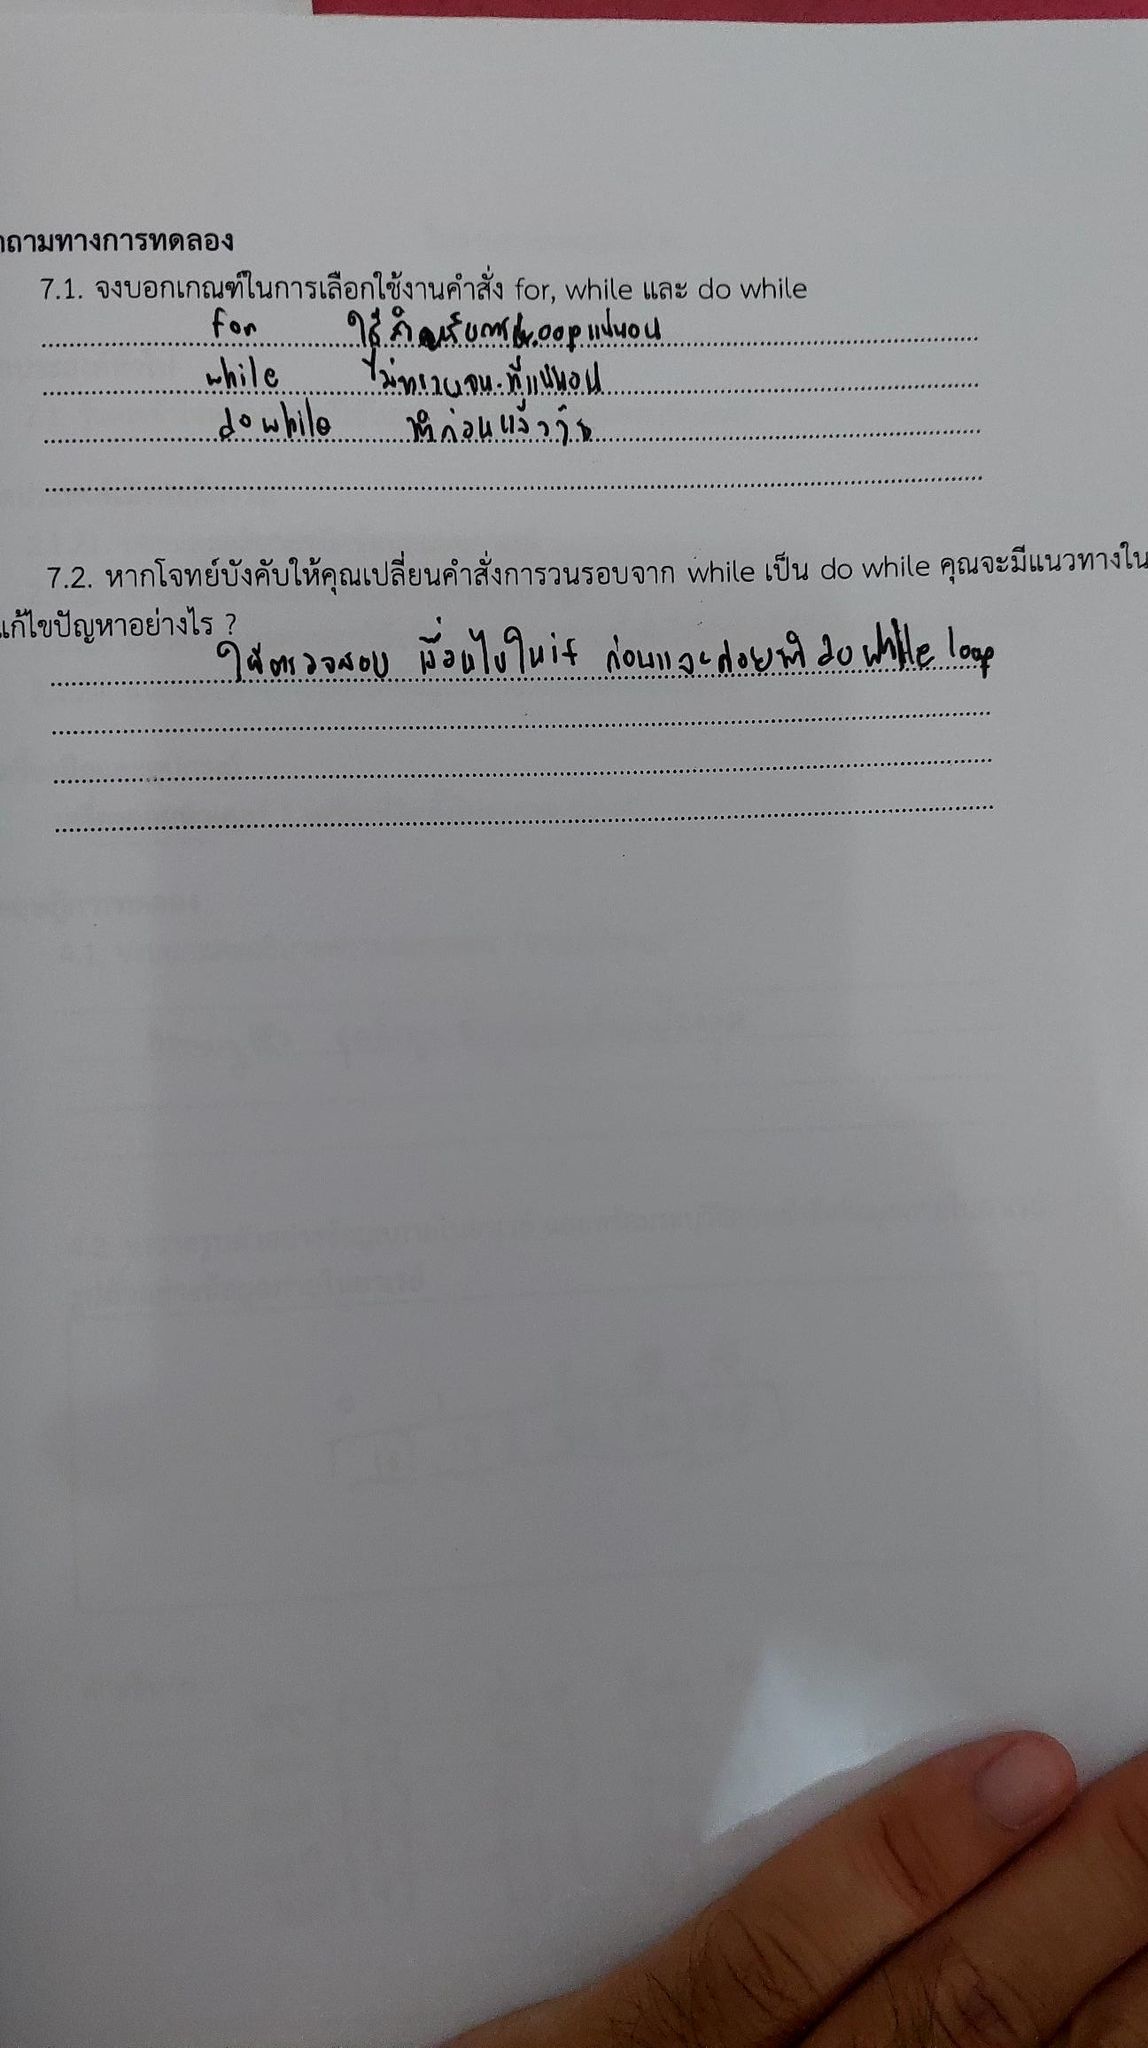 ถามทางการทดลอง
7.1. จงบอกเกณฑ์ในการเลือกใช้งานคำสั่ง for, while และ do while
for ใช้สำหรับการ loop แน่นอน
while ไม่ทราบจน.ที่แน่นอน
do while ทำก่อนแล้ว
7.2. หากโจทย์บังคับให้คุณเปลี่ยนคำสั่งการวนรอบจาก while เป็น do while คุณจะมีแนวทางใน
แก้ไขปัญหาอย่างไร ?
ให้ตรวจสอบ เงื่อนไขใน if ก่อนและค่อยทำ do while loop